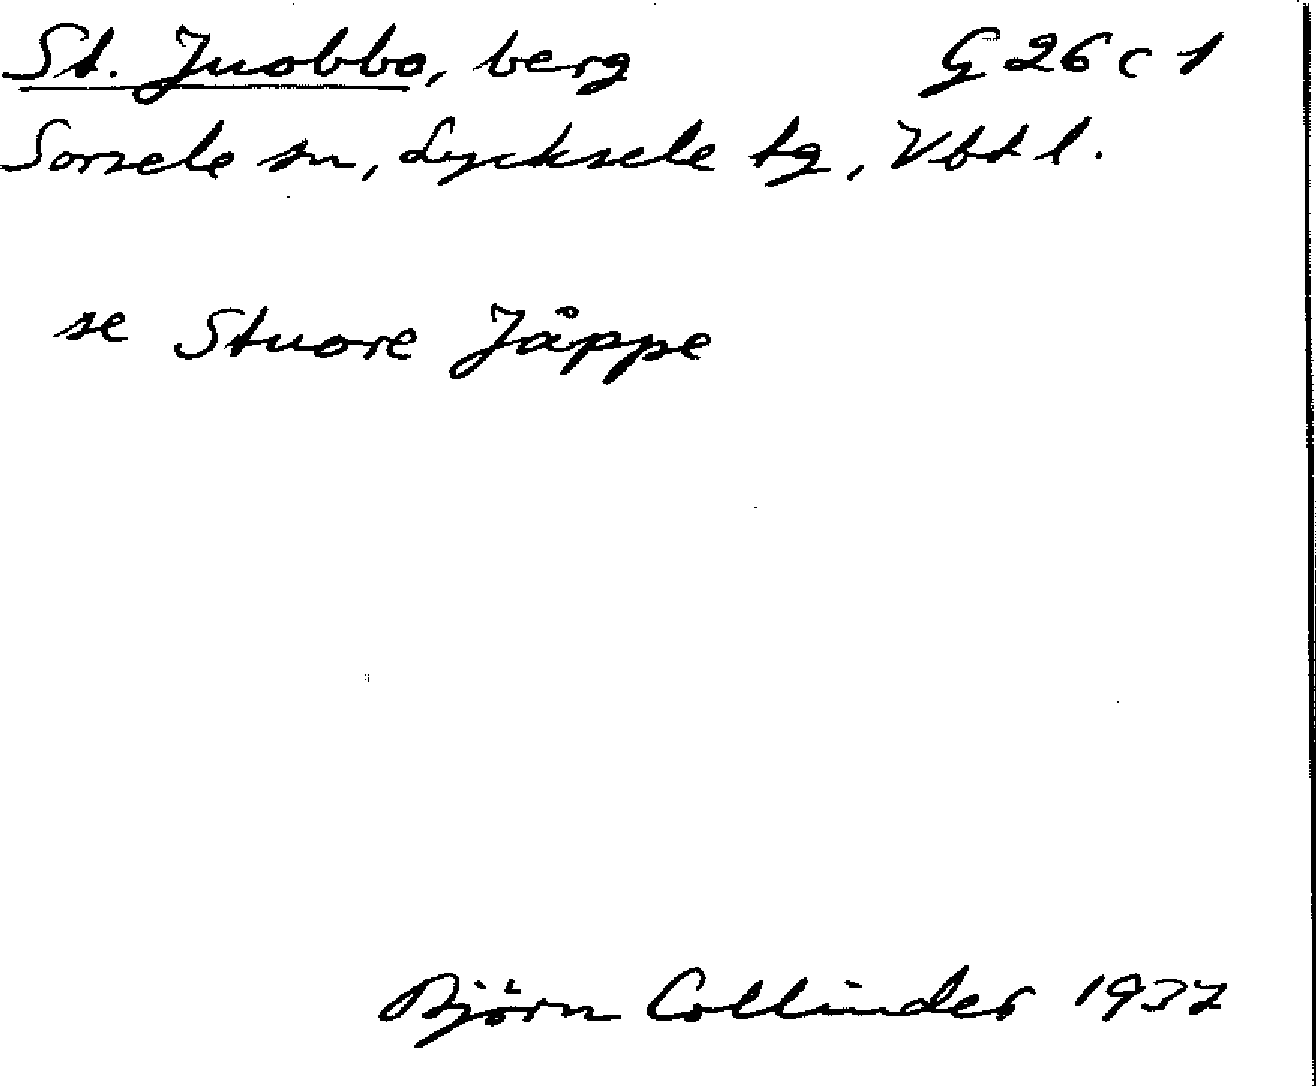 St. Juobbo, berg G 26 c 1
Sorsele sn, Lycksele tg, Vbtl.
se Stuore Jåppe
Björn Collinder 1937